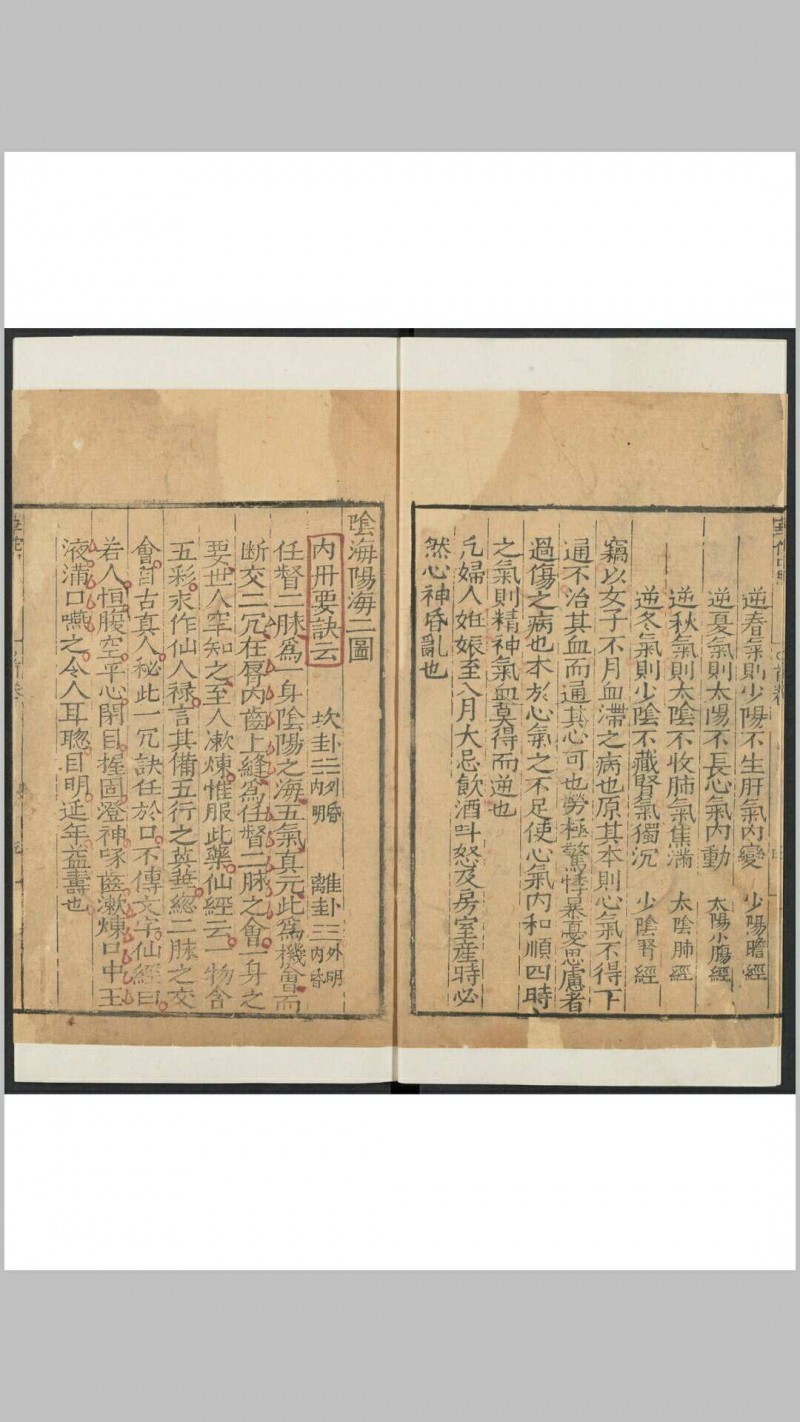 逆春氣則少陽不生肝氣內變 少陽膽經
逆夏氣則太陽不長心氣內動 太陽小腸經
逆秋氣則太陰不收肺氣焦滿 太陰肺經
逆冬氣則少陰不藏腎氣獨沉 少陰腎經
竊以女子不月血滯之病也原其本則心氣不得下
通不治其血而通其心可也勞極驚悸暴憂思慮者
過傷之病也本於心氣之不足使心氣內和順四時
之氣則精神氣血莫得而逆也
凡婦人姙娠至八月大忌飲酒叫怒及房室產時必
然心神昏亂也
陰海陽海二圖
內丹要訣云 坎卦外昏內明 離卦外明內昏
任督二脉爲一身陰陽之海五氣真元此爲機會而
断交二冗在唇內齒上縫爲任督二脉之會一身之
要世人罕知之至人漱煉惟服此藥仙經云一物含
五彩求作仙人禄言其備五行之英華總二脉之交
會自古真人秘此一冗訣任於口不傳文字仙經曰
若人恒腹空平心閉目握固澄神啄齒漱煉口中玉
液滿口嚥之令人耳聰目明延年益壽也